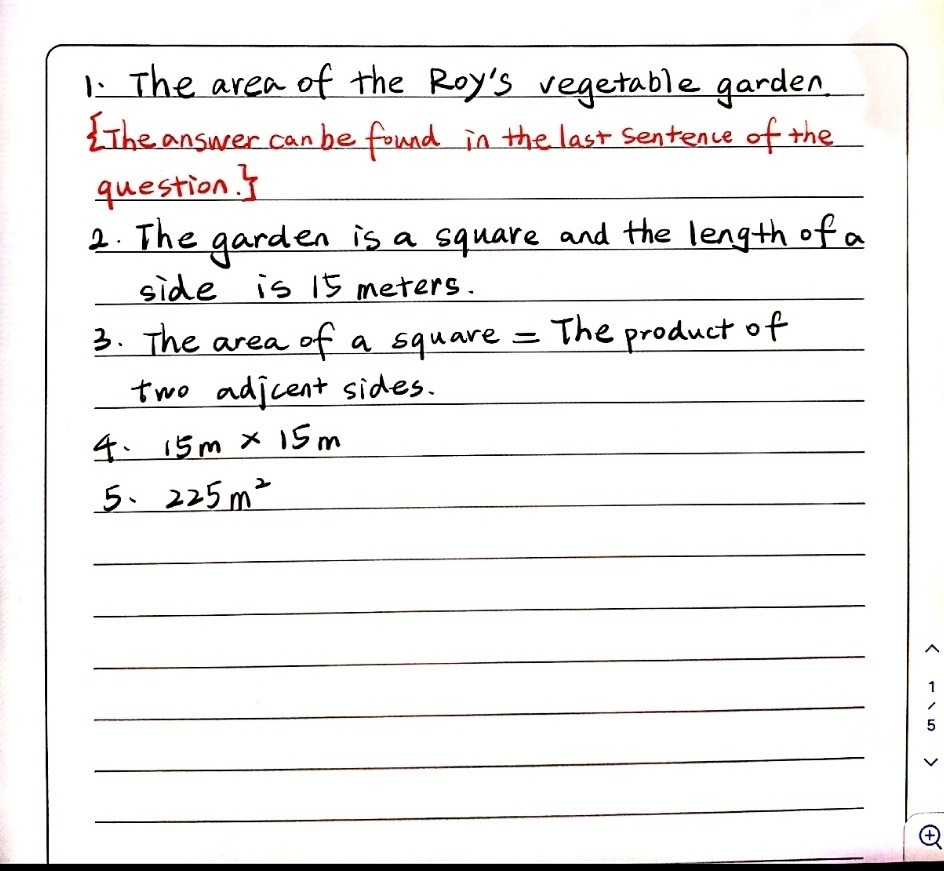 1. The area of the Roy's vegetable garden.
{The answer can be found in the last sentence of the
question.}
2. The garden is a square and the length of a
side is 15 meters.
3. The area of a square = The product of
two adjcent sides.
4. 15m × 15m
5. 225m²
1
/
5